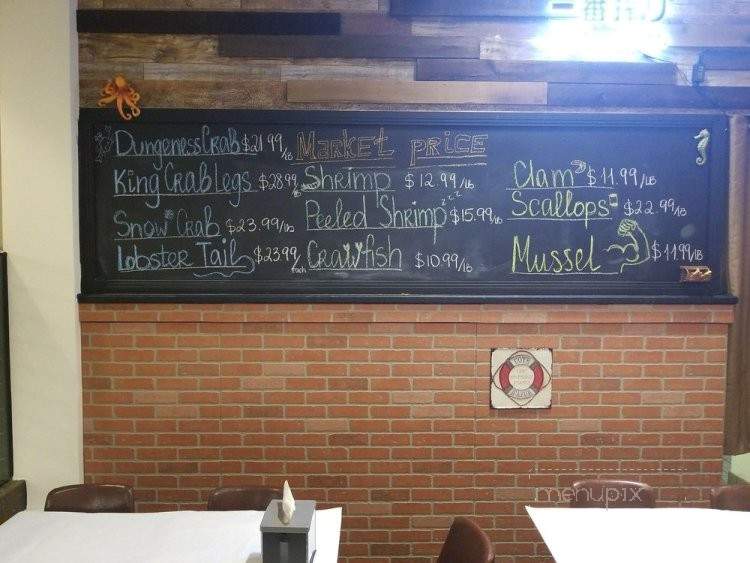 一番搾り
Market Price
Dungeness Crab $21.99/lb
King Crab Legs $28.99
Snow Crab $23.99/lb
Lobster Tail $23.99/each
Shrimp $12.99/lb
Peeled Shrimp zzz $15.99/lb
Crawfish $10.99/lb
Clam $11.99/lb
Scallops $22.99/lb
Mussel $11.99/lb
menupix